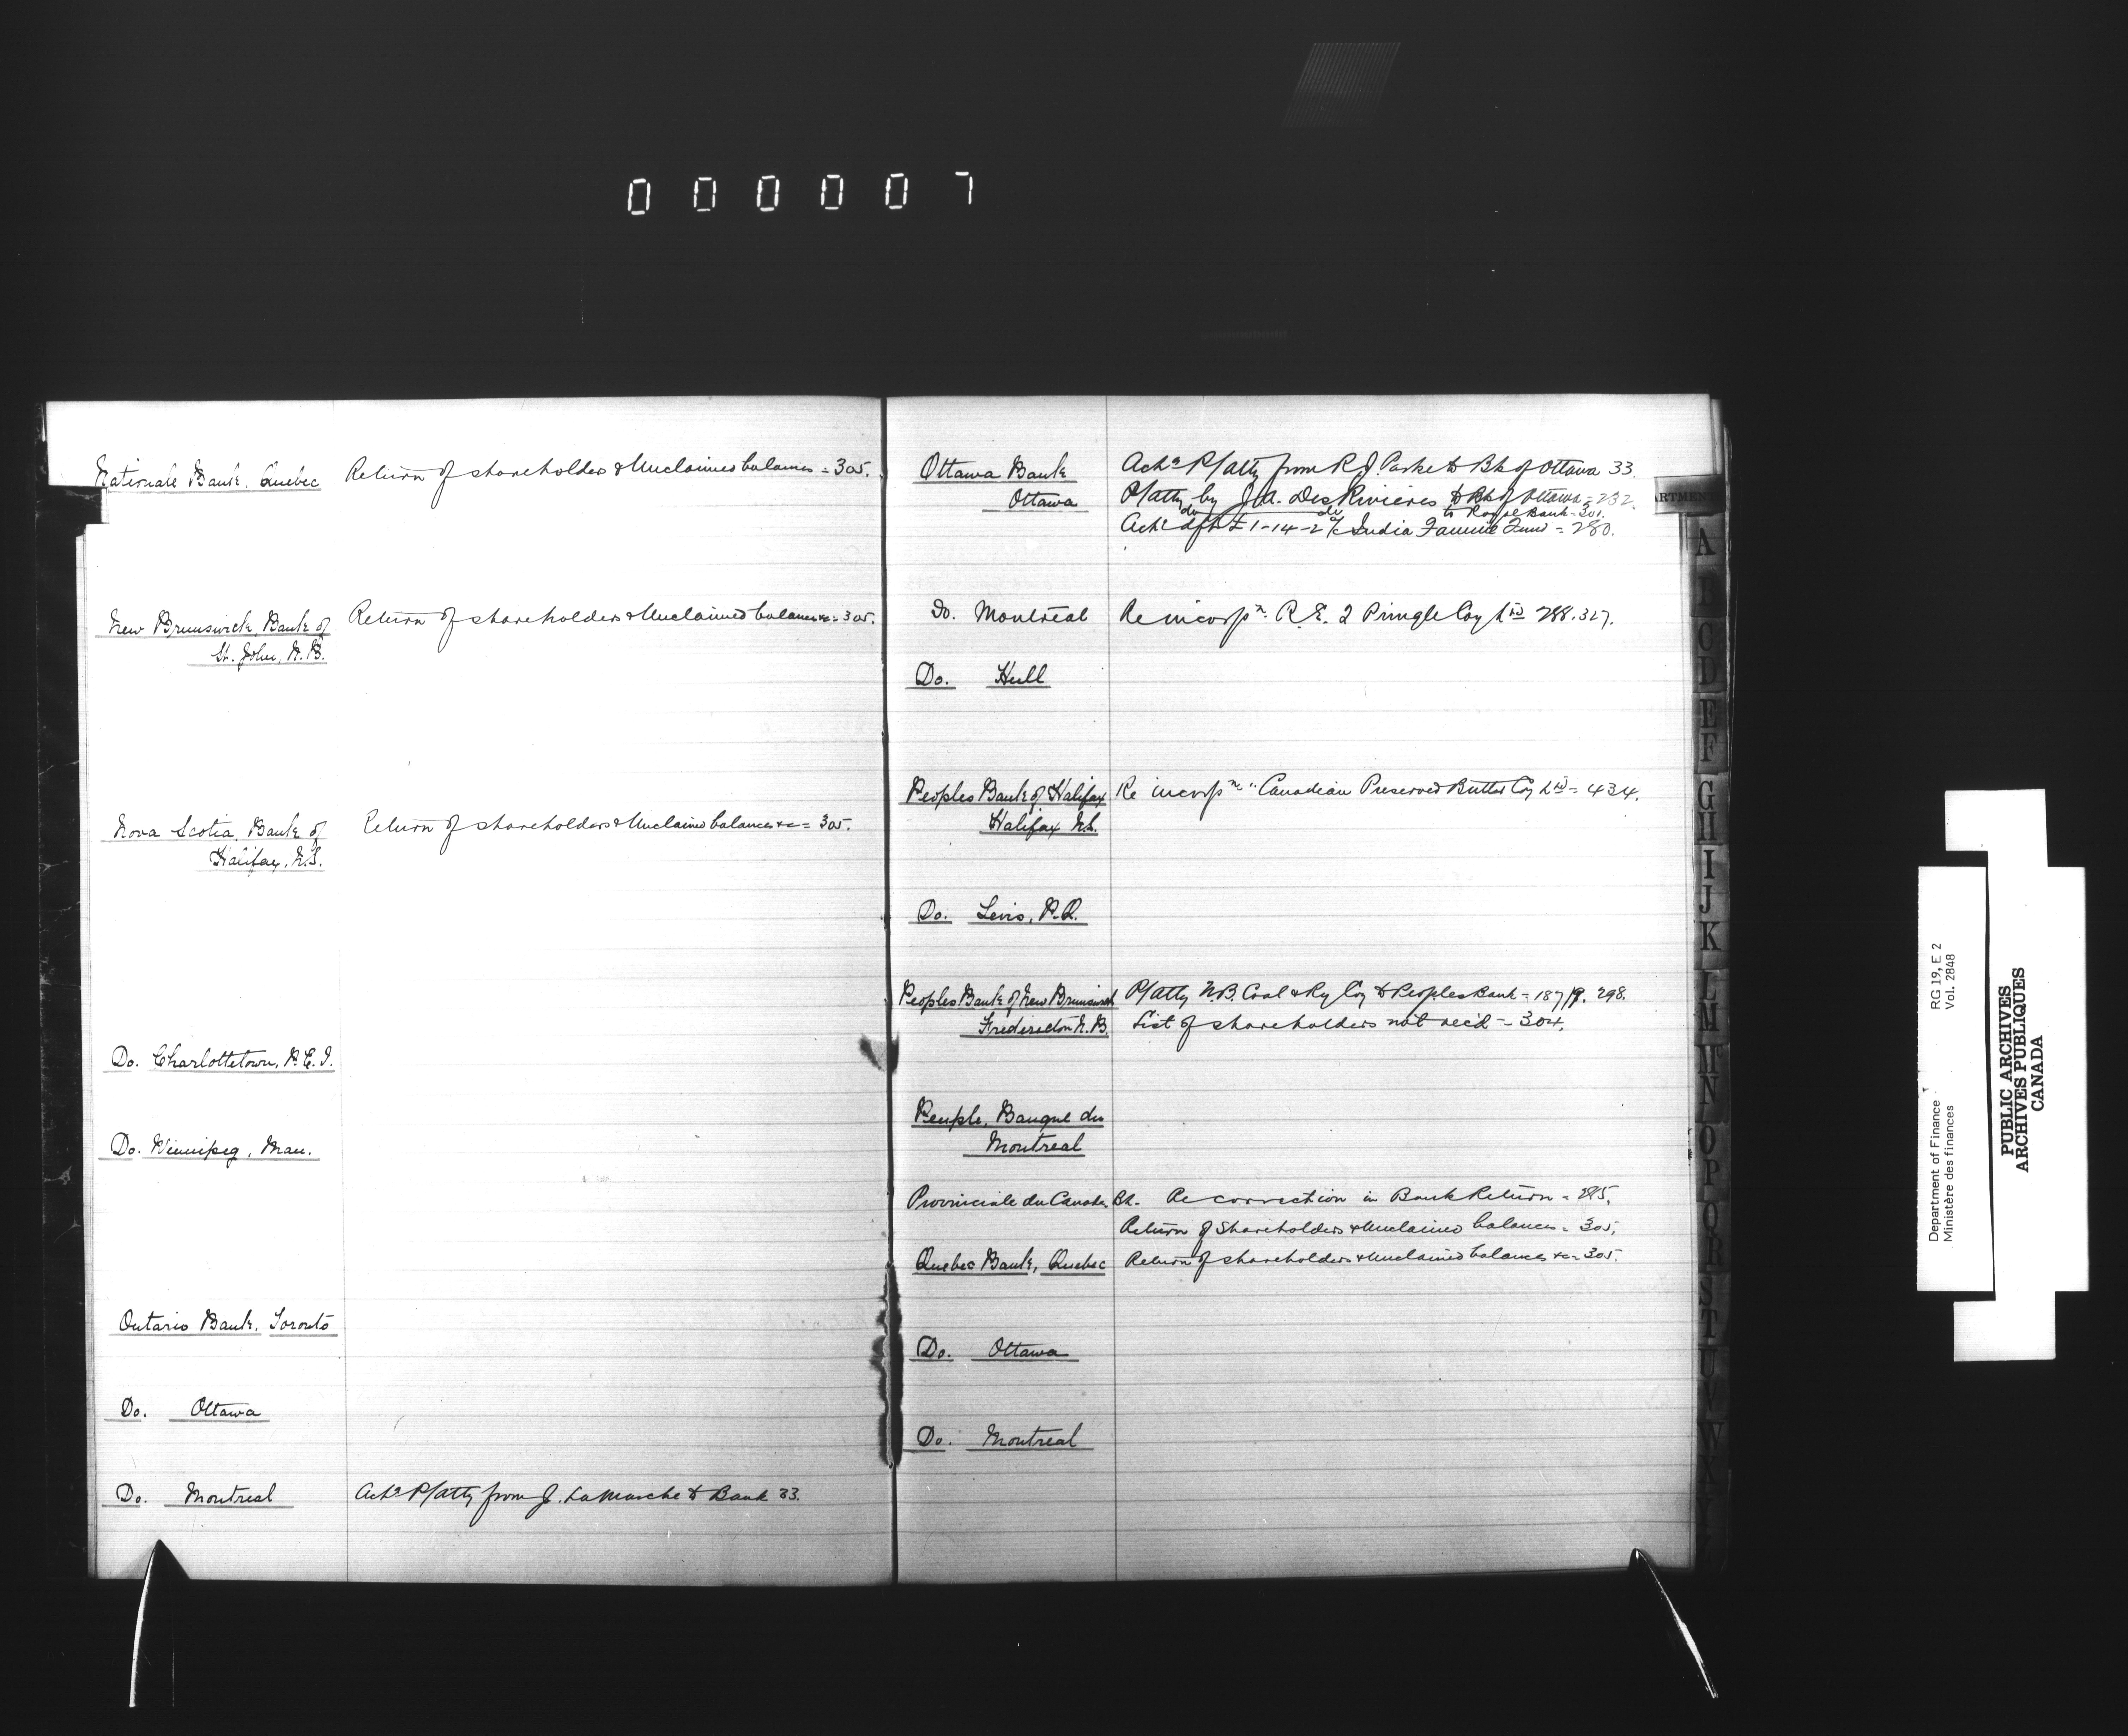 000007
Nationale Bank, Quebec Return of shareholders & Unclaimed balances = 305.
New Brunswick, Bank of Return of shareholders & Unclaimed balances &c = 305.
St. John, N.B.
Nova Scotia, Bank of Return of shareholders & Unclaimed balances &c = 305.
Halifax, N.S.
Do. Charlottetown, P.E.I.
Do. Winnipeg, Man.
Ontario Bank, Toronto
Do. Ottawa
Do. Montreal Ackg P/atty from J. LaMarche to Bank 33.
Ottawa Bank Ackg P/atty from R.J. Parke to Bk of Ottawa 33.
Ottawa P/atty by J.A. DesRivieres to Bk of Ottawa = 232.
do do to Royal Bank = 301.
Ackg dft £1-14-2 a/c India Famine Fund = 280.
Do. Montreal Re incorpn. R.E. Pringle Coy Ltd 288.327.
Do. Hull
Peoples Bank of Halifax Re incorpn "Canadian Preserved Butter Coy Ltd = 434.
Halifax N.S.
Do. Levis, P.Q.
Peoples Bank of New Brunswick P/atty N.B. Coal & Ry Coy to Peoples Bank = 187/9. 298.
Fredericton N.B. List of shareholders not rec'd = 304.
Peuple, Banque du
Montreal
Provinciale du Canada, Bk. Re correction in Bank Return = 285.
Return of Shareholders & Unclaimed balances = 305.
Quebec Bank, Quebec Return of shareholders & Unclaimed balances &c = 305.
Do. Ottawa
Do. Montreal
ARTMEN
A
C
D
E
F
G
H
I
J
K
L
M
Mc
N
O
P
Q
R
S
T
U
V
W
X
Y
Department of Finance RG 19, E 2
Ministère des finances Vol. 2848
PUBLIC ARCHIVES
ARCHIVES PUBLIQUES
CANADA